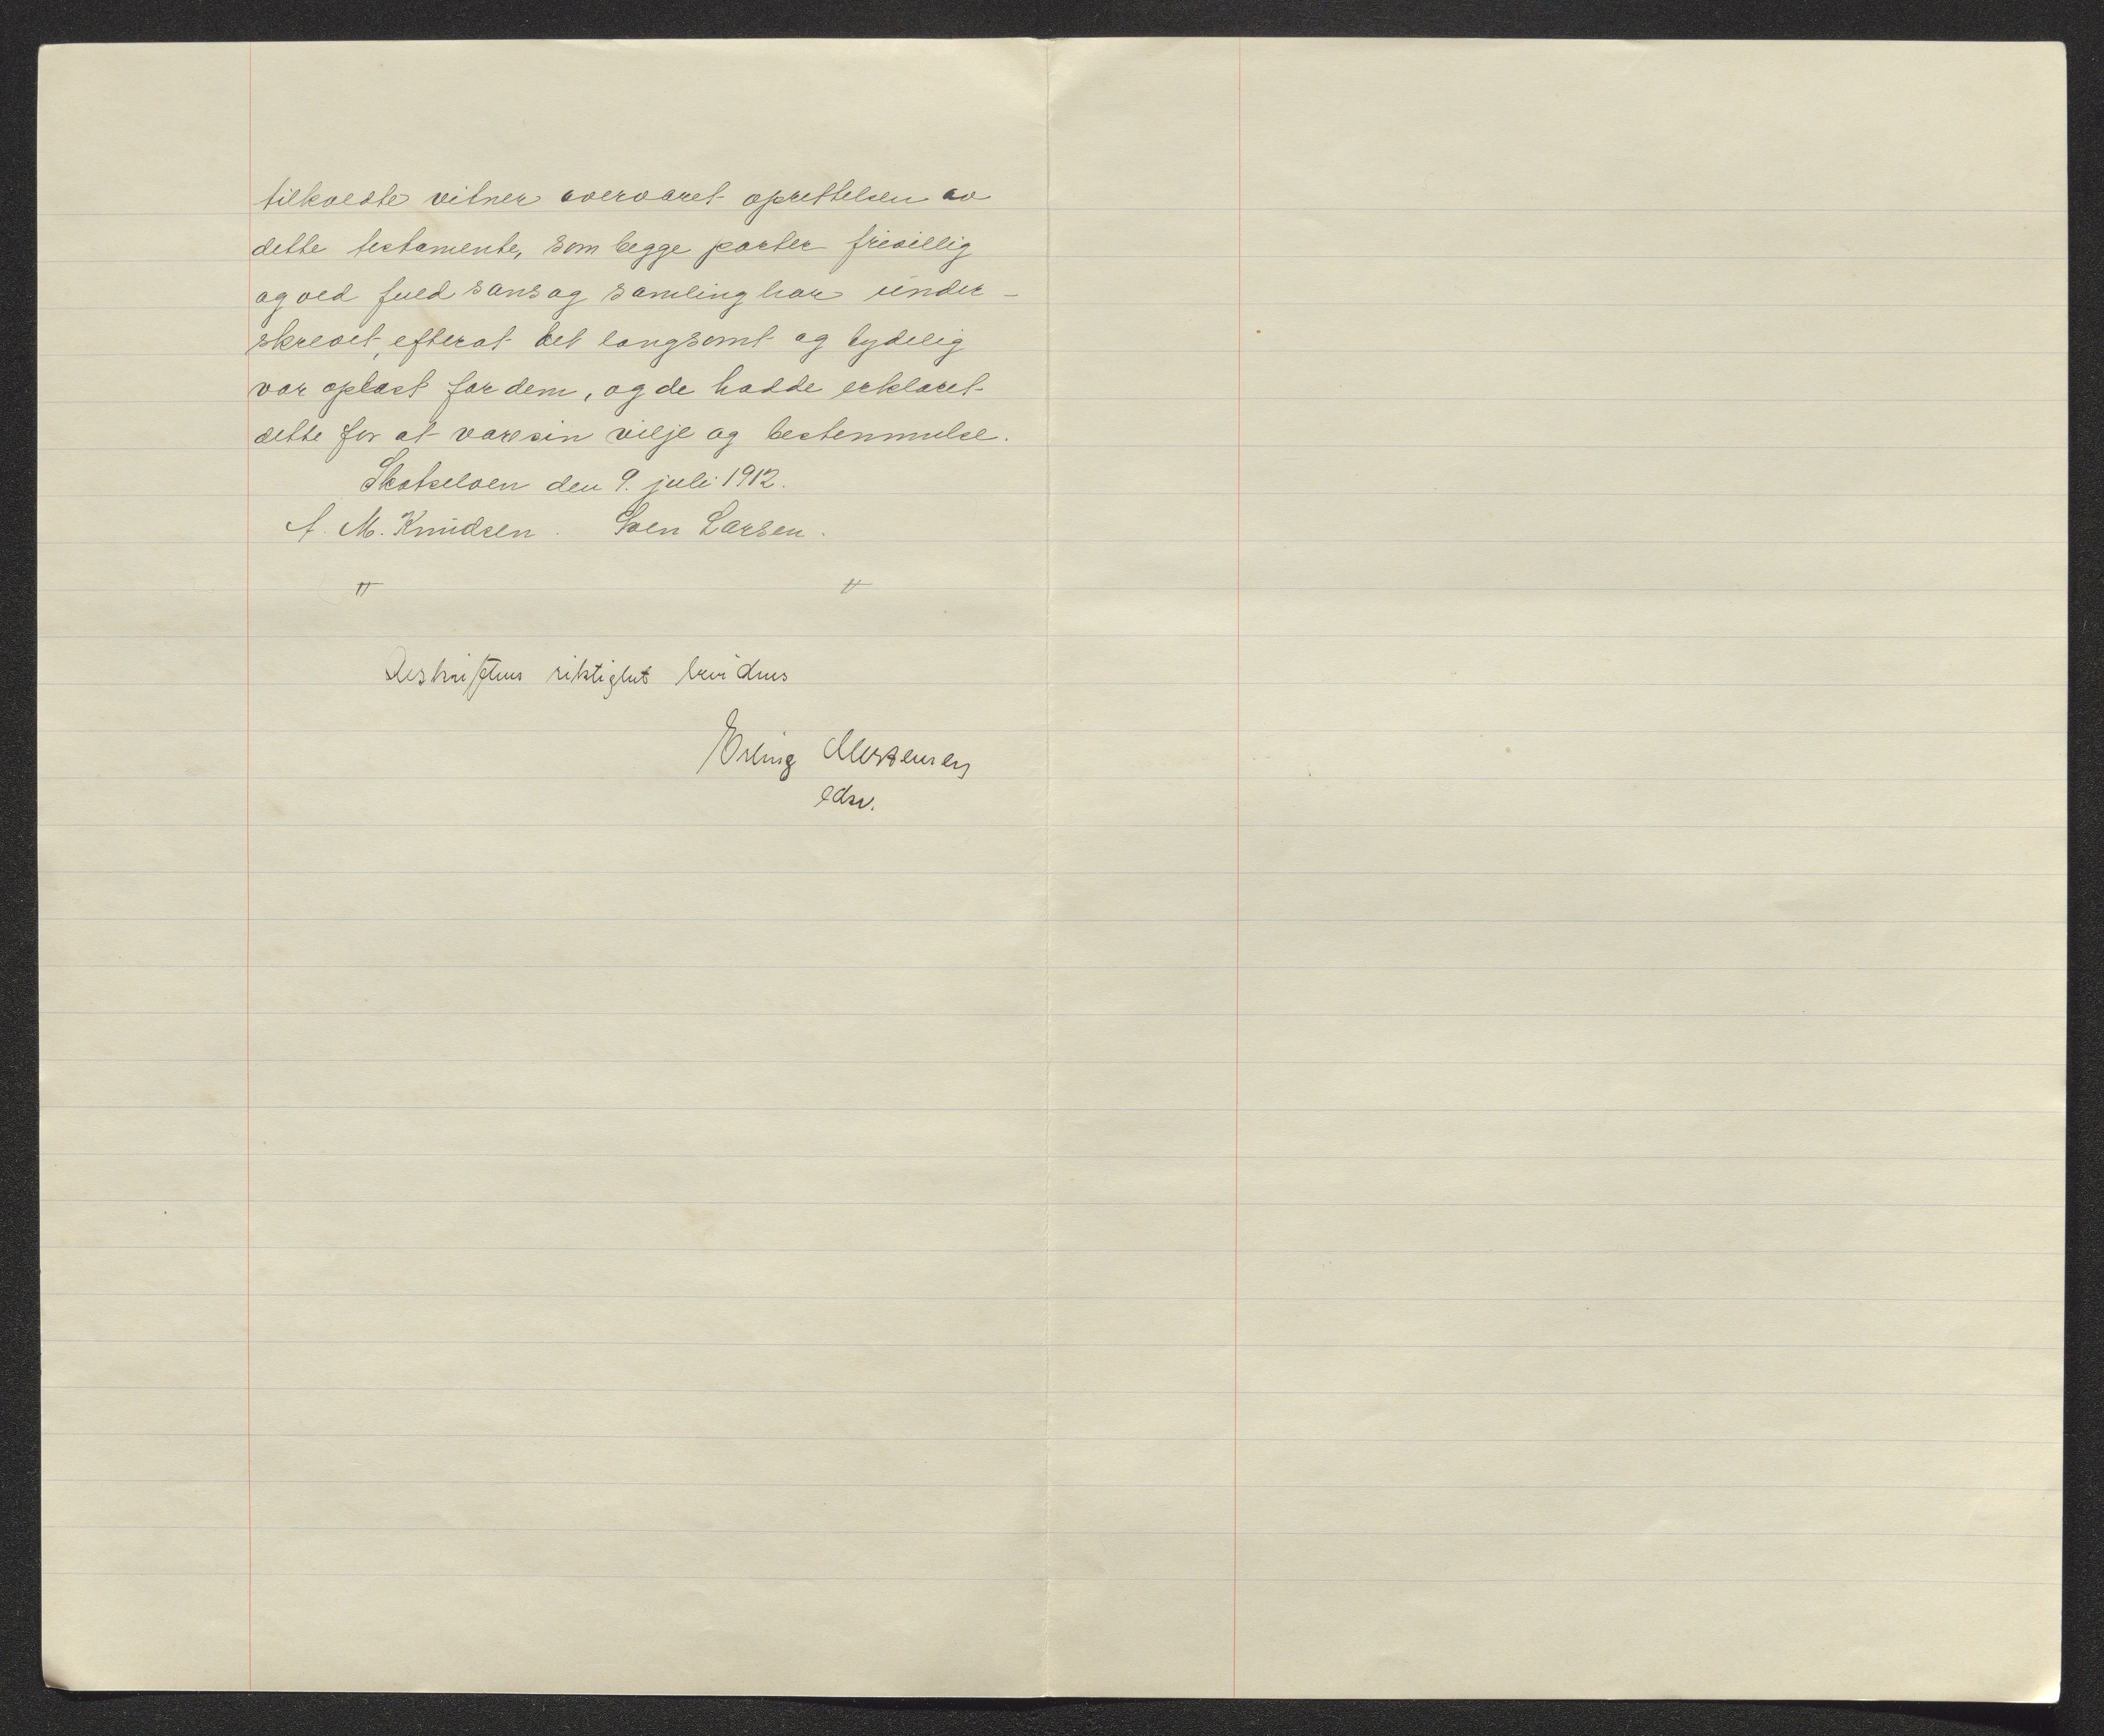 tilkaldte vitner overværet oprettelsen av
dette testamente, som begge parter frivillig
og ved fuld sans og samling har under-
skrevet, efterat det langsomt og tydelig
var oplæst for dem, og de hadde erklæret
dette for at være sin vilje og bestemmelse.
Skotselven den 9. juli 1912.
A. M. Knudsen. Sven Larsen.
" "
Avskriftens riktighet bevidnes
Erling Mortensen
edsv.